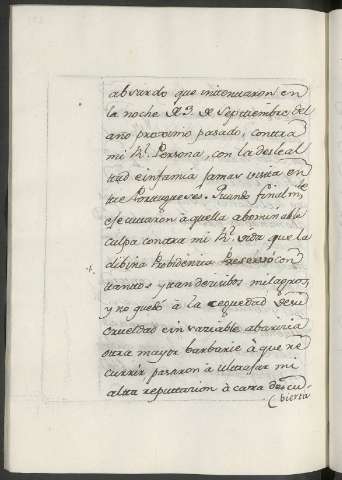 absurdo que intentaron en
la noche de 3. de Septtiembre del
año proximo pasado, contra
mi Rl. Persona, con la desleal
ttad e infamia jamas vista en
tre Portugueses. Quando finalmte.
ejecuttaron àquella abominable
culpa contra mi Rl. vida que la
dibina Probidencia Preservò con
ttanttos y tan decisibos milagros,
y no quedò à la cequedad de su
crueldad e in variable abaricia
otra mayor barbarie à que re
currir pasaron à ulttrajar mi
altta reputtacion à cara descu-
bierta